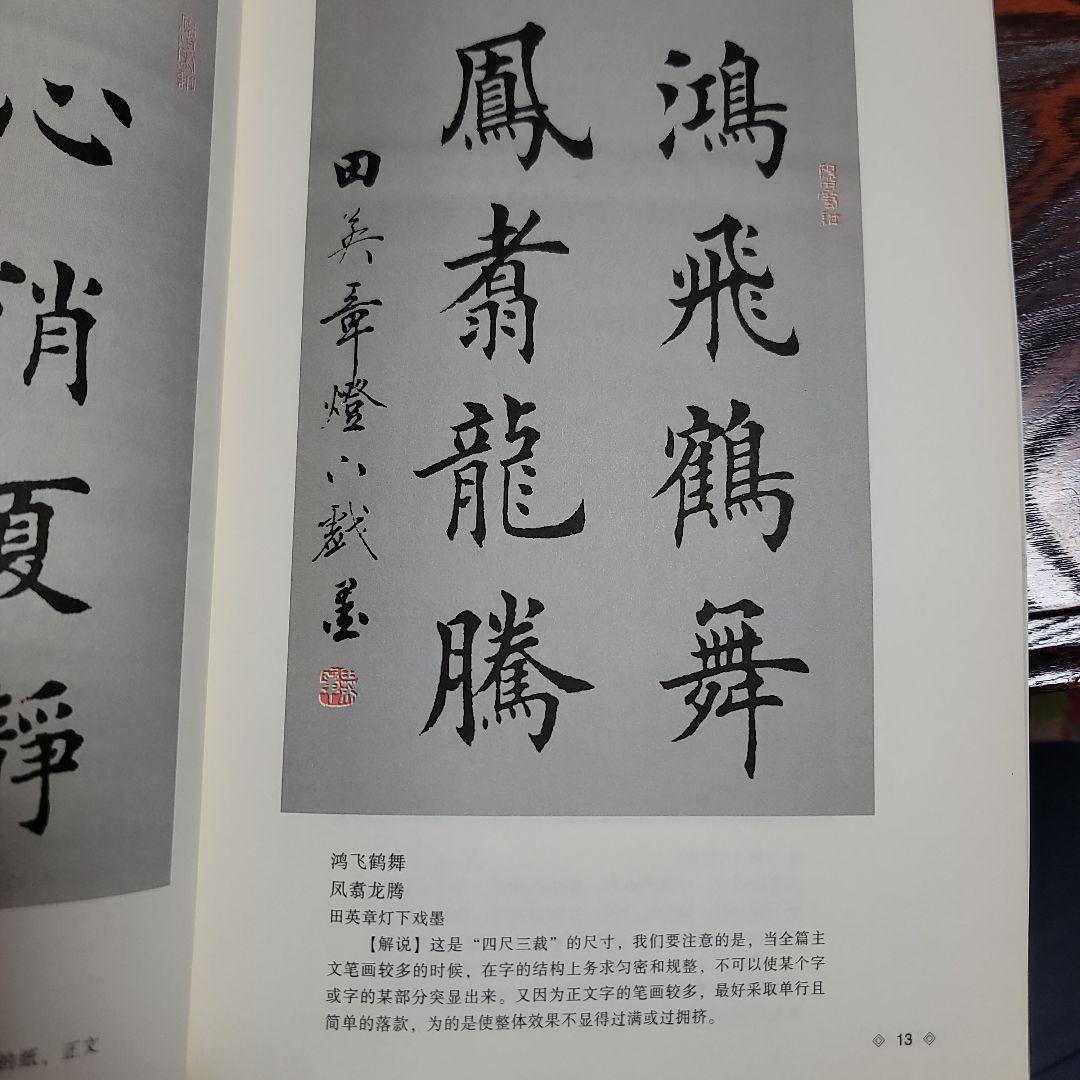 心
清
夏
靜
的纸，正文
鴻飛鶴舞
鳳翥龍騰
田英章燈下戲墨
鸿飞鹤舞
凤翥龙腾
田英章灯下戏墨
【解说】这是“四尺三裁”的尺寸，我们要注意的是，当全篇主
文笔画较多的时候，在字的结构上务求匀密和规整，不可以使某个字
或字的某部分突显出来。又因为正文字的笔画较多，最好采取单行且
简单的落款，为的是使整体效果不显得过满或过拥挤。
13